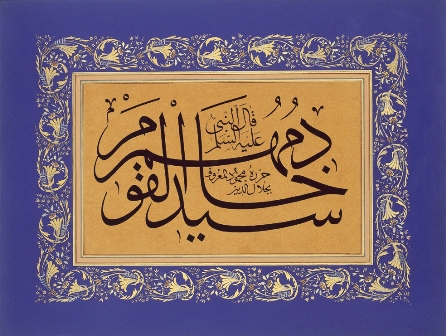 قال النبي
عليه السلم
سيد القوم خادمهم
حرره محمود المعروف
بجلال الدين